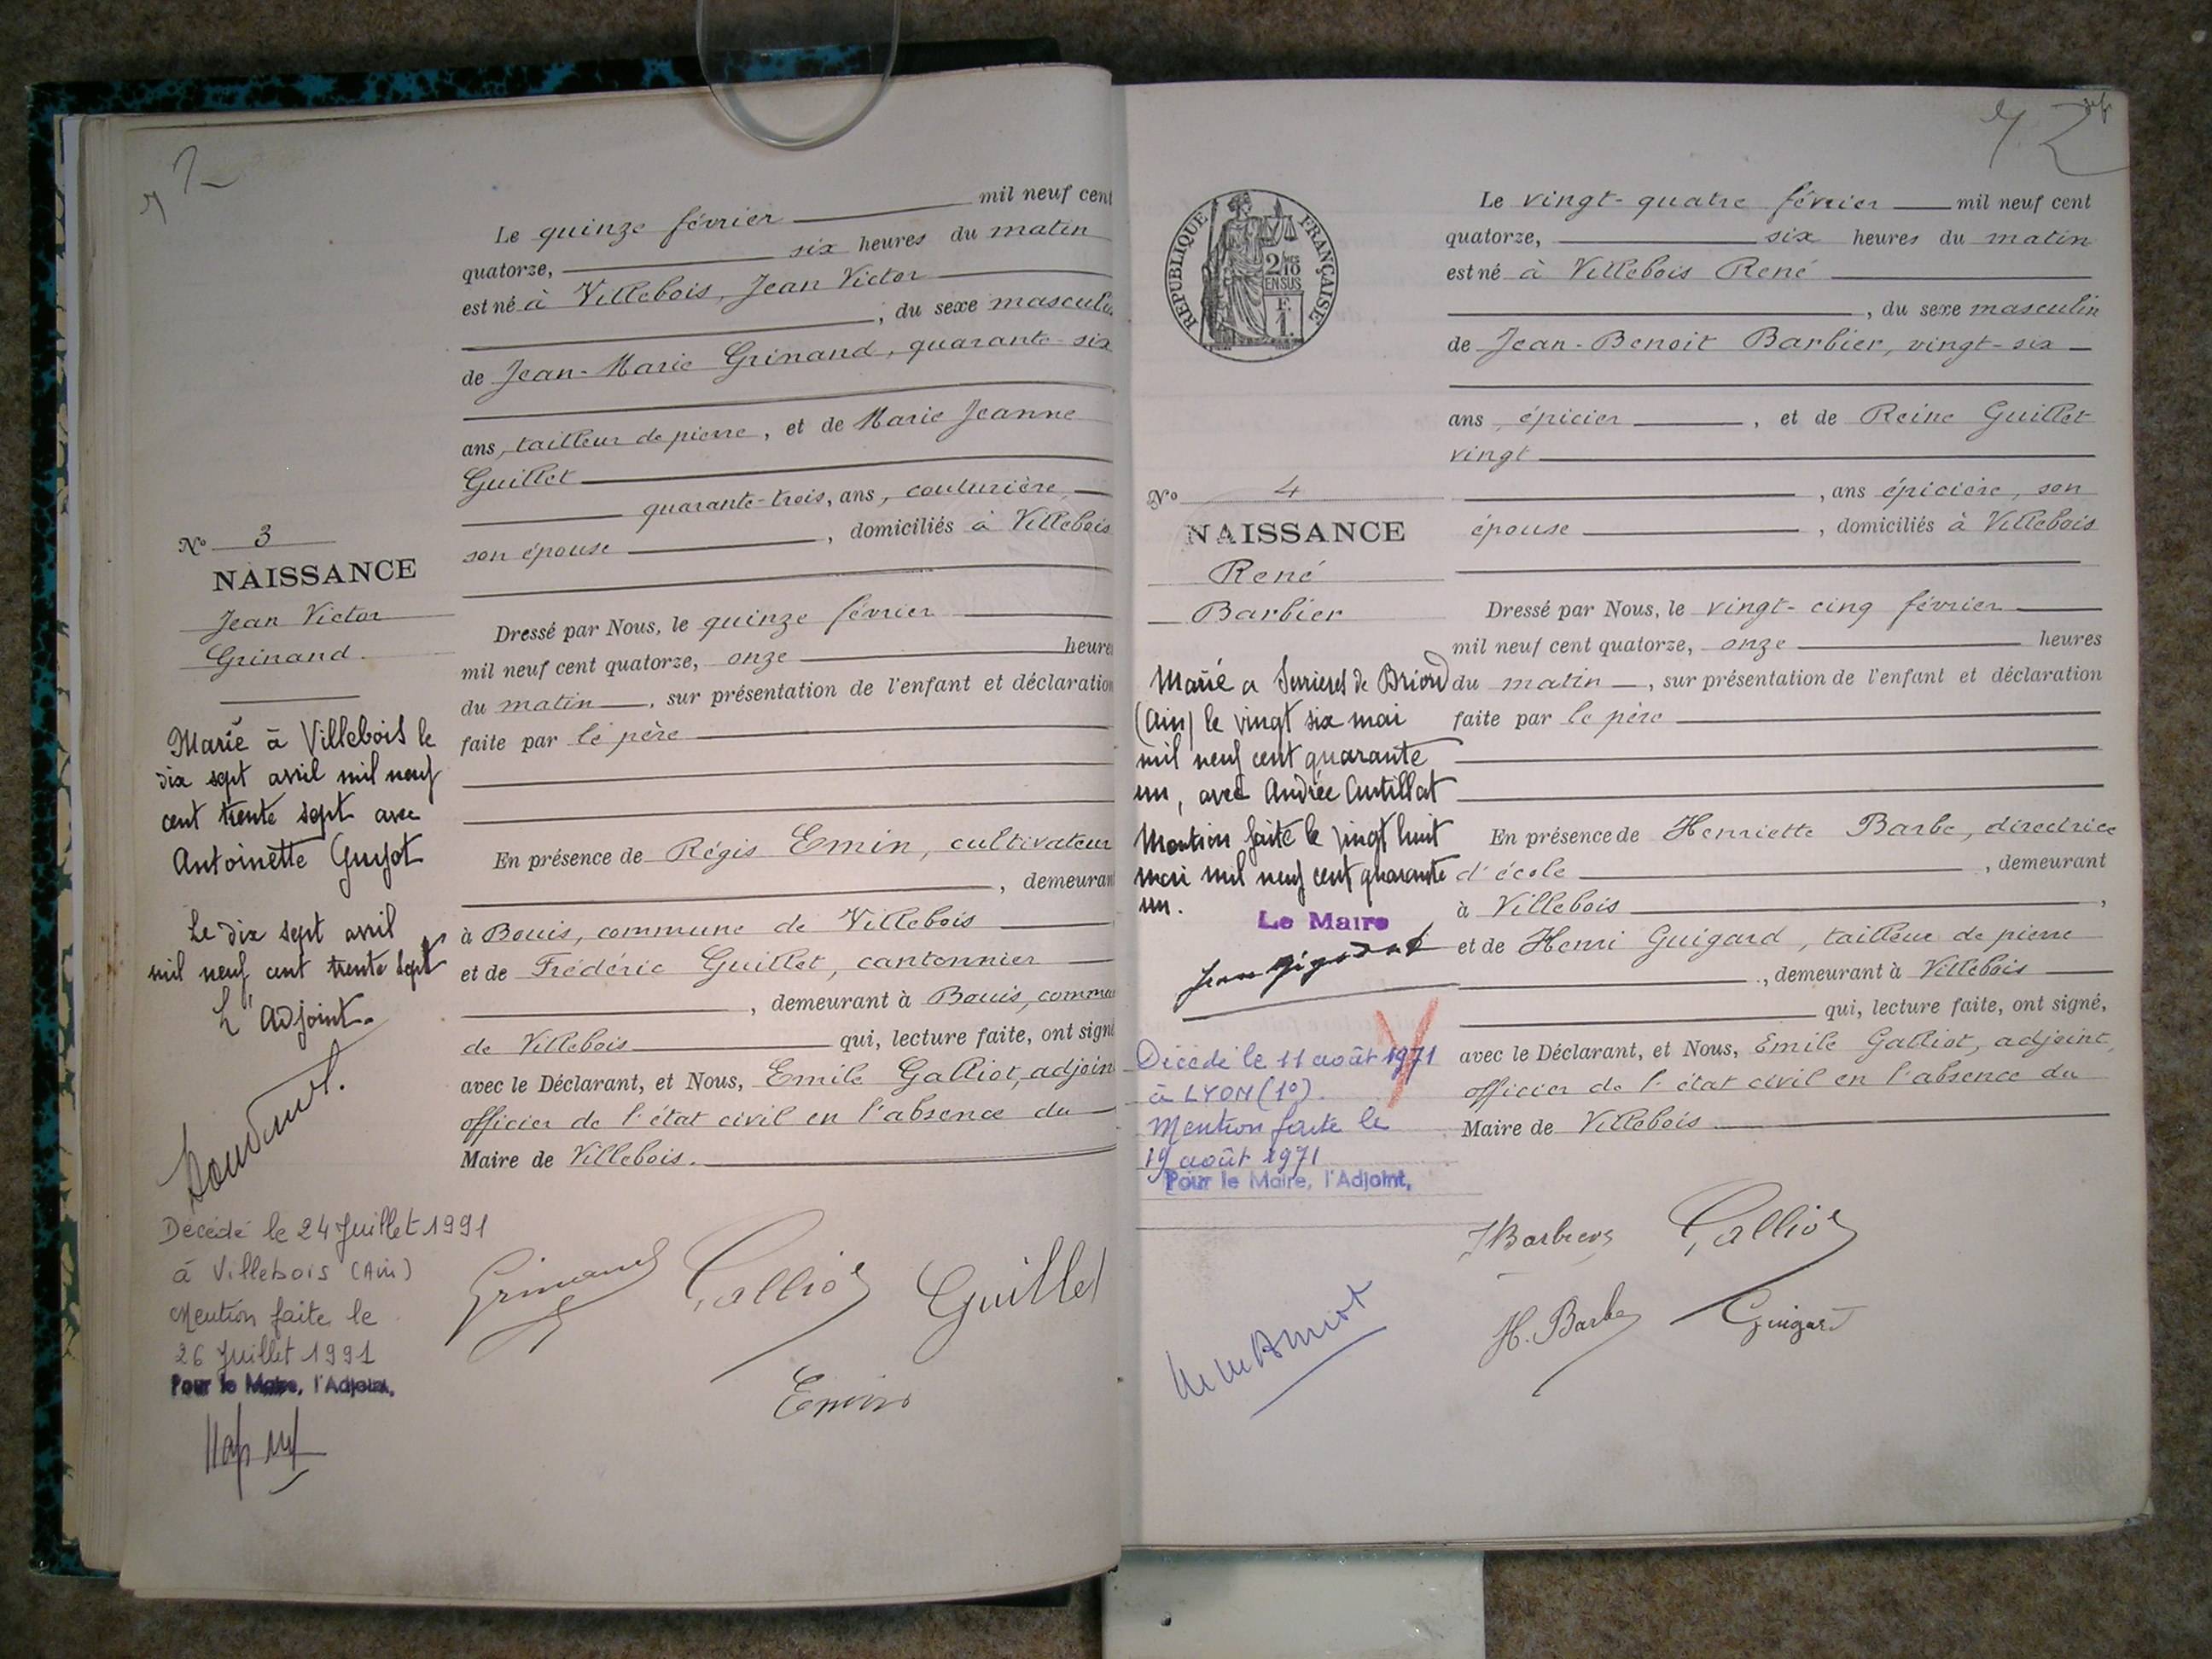 Le quinze février mil neuf cent
quatorze, six heures du matin
est né à Villebois, Jean Victor
, du sexe masculin
de Jean-Marie Grinand, quarante-six
ans, tailleur de pierre, et de Marie Jeanne
Guillet
quarante-trois, ans, couturière,
son épouse, domiciliés à Villebois
No 3
NAISSANCE
Jean Victor
Grinand
Dressé par Nous, le quinze février
mil neuf cent quatorze, onze heures
du matin, sur présentation de l'enfant et déclaration
faite par le père
En présence de Régis Emin, cultivateur
, demeurant
à Bouis, commune de Villebois
et de Frédéric Guillet, cantonnier
, demeurant à Bouis, commune
de Villebois qui, lecture faite, ont signé
avec le Déclarant, et Nous, Emile Galliot, adjoint
officier de l'état civil en l'absence du
Maire de Villebois.
Marié à Villebois le
dix sept avril mil neuf
cent trente sept avec
Antoinette Guyot
Le dix sept avril
mil neuf cent trente sept
L'Adjoint.
Décédé le 24 Juillet 1991
à Villebois (Ain)
Mention faite le
26 Juillet 1991
Pour le Maire, l'Adjoint,
Grinand Galliot Guillet
Emin
72
RÉPUBLIQUE FRANÇAISE
2/10
EN SUS
F.
1.
Le vingt-quatre février mil neuf cent
quatorze, six heures du matin
est né à Villebois René
, du sexe masculin
de Jean-Benoit Barbier, vingt-six
ans, épicier, et de Reine Guillet
vingt
, ans épicière, son
épouse, domiciliés à Villebois
No 4
NAISSANCE
René
Barbier
Dressé par Nous, le vingt-cinq février
mil neuf cent quatorze, onze heures
du matin, sur présentation de l'enfant et déclaration
faite par le père
En présence de Henriette Barbe, directrice
d'école, demeurant
à Villebois,
et de Henri Guigard, tailleur de pierre
, demeurant à Villebois
qui, lecture faite, ont signé,
avec le Déclarant, et Nous, Emile Galliot, adjoint
officier de l'état civil en l'absence du
Maire de Villebois
Marié a Serrieres de Briord
(Ain) le vingt six mai
mil neuf cent quarante
un, avec Andrée Antillat
Mention faite le vingt huit
mai mil neuf cent quarante
un.
Le Maire
Décédé le 11 août 1971
à LYON (1°).
Mention faite le
19 août 1971
Pour le Maire, l'Adjoint,
J Barbier Galliot
H. Barbe Guigard